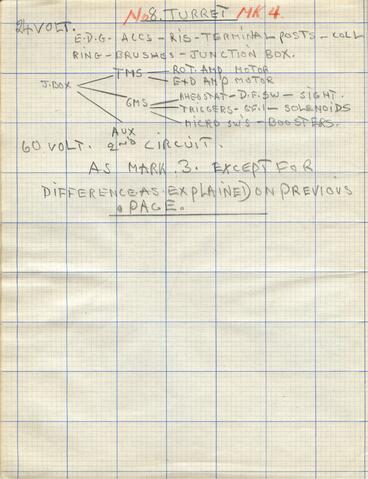 No 8. TURRET MK 4.
24 VOLT.
E.D.G - ACCS - RIS - TERMINAL POSTS - COLL
RING - BRUSHES - JUNCTION BOX.
J.BOX
TMS
ROT. AMP MOTOR
EXD AMP MOTOR
GMS
RHEOSTAT - D.F. SW - SIGHT.
TRIGGERS - G.F.I - SOLENOIDS
MICRO SW'S - BOOSTERS.
AUX
60 VOLT. 2ND CIRCUIT.
AS MARK. 3. EXCEPT FOR
DIFFERENCE AS EXPLAINED ON PREVIOUS
PAGE.